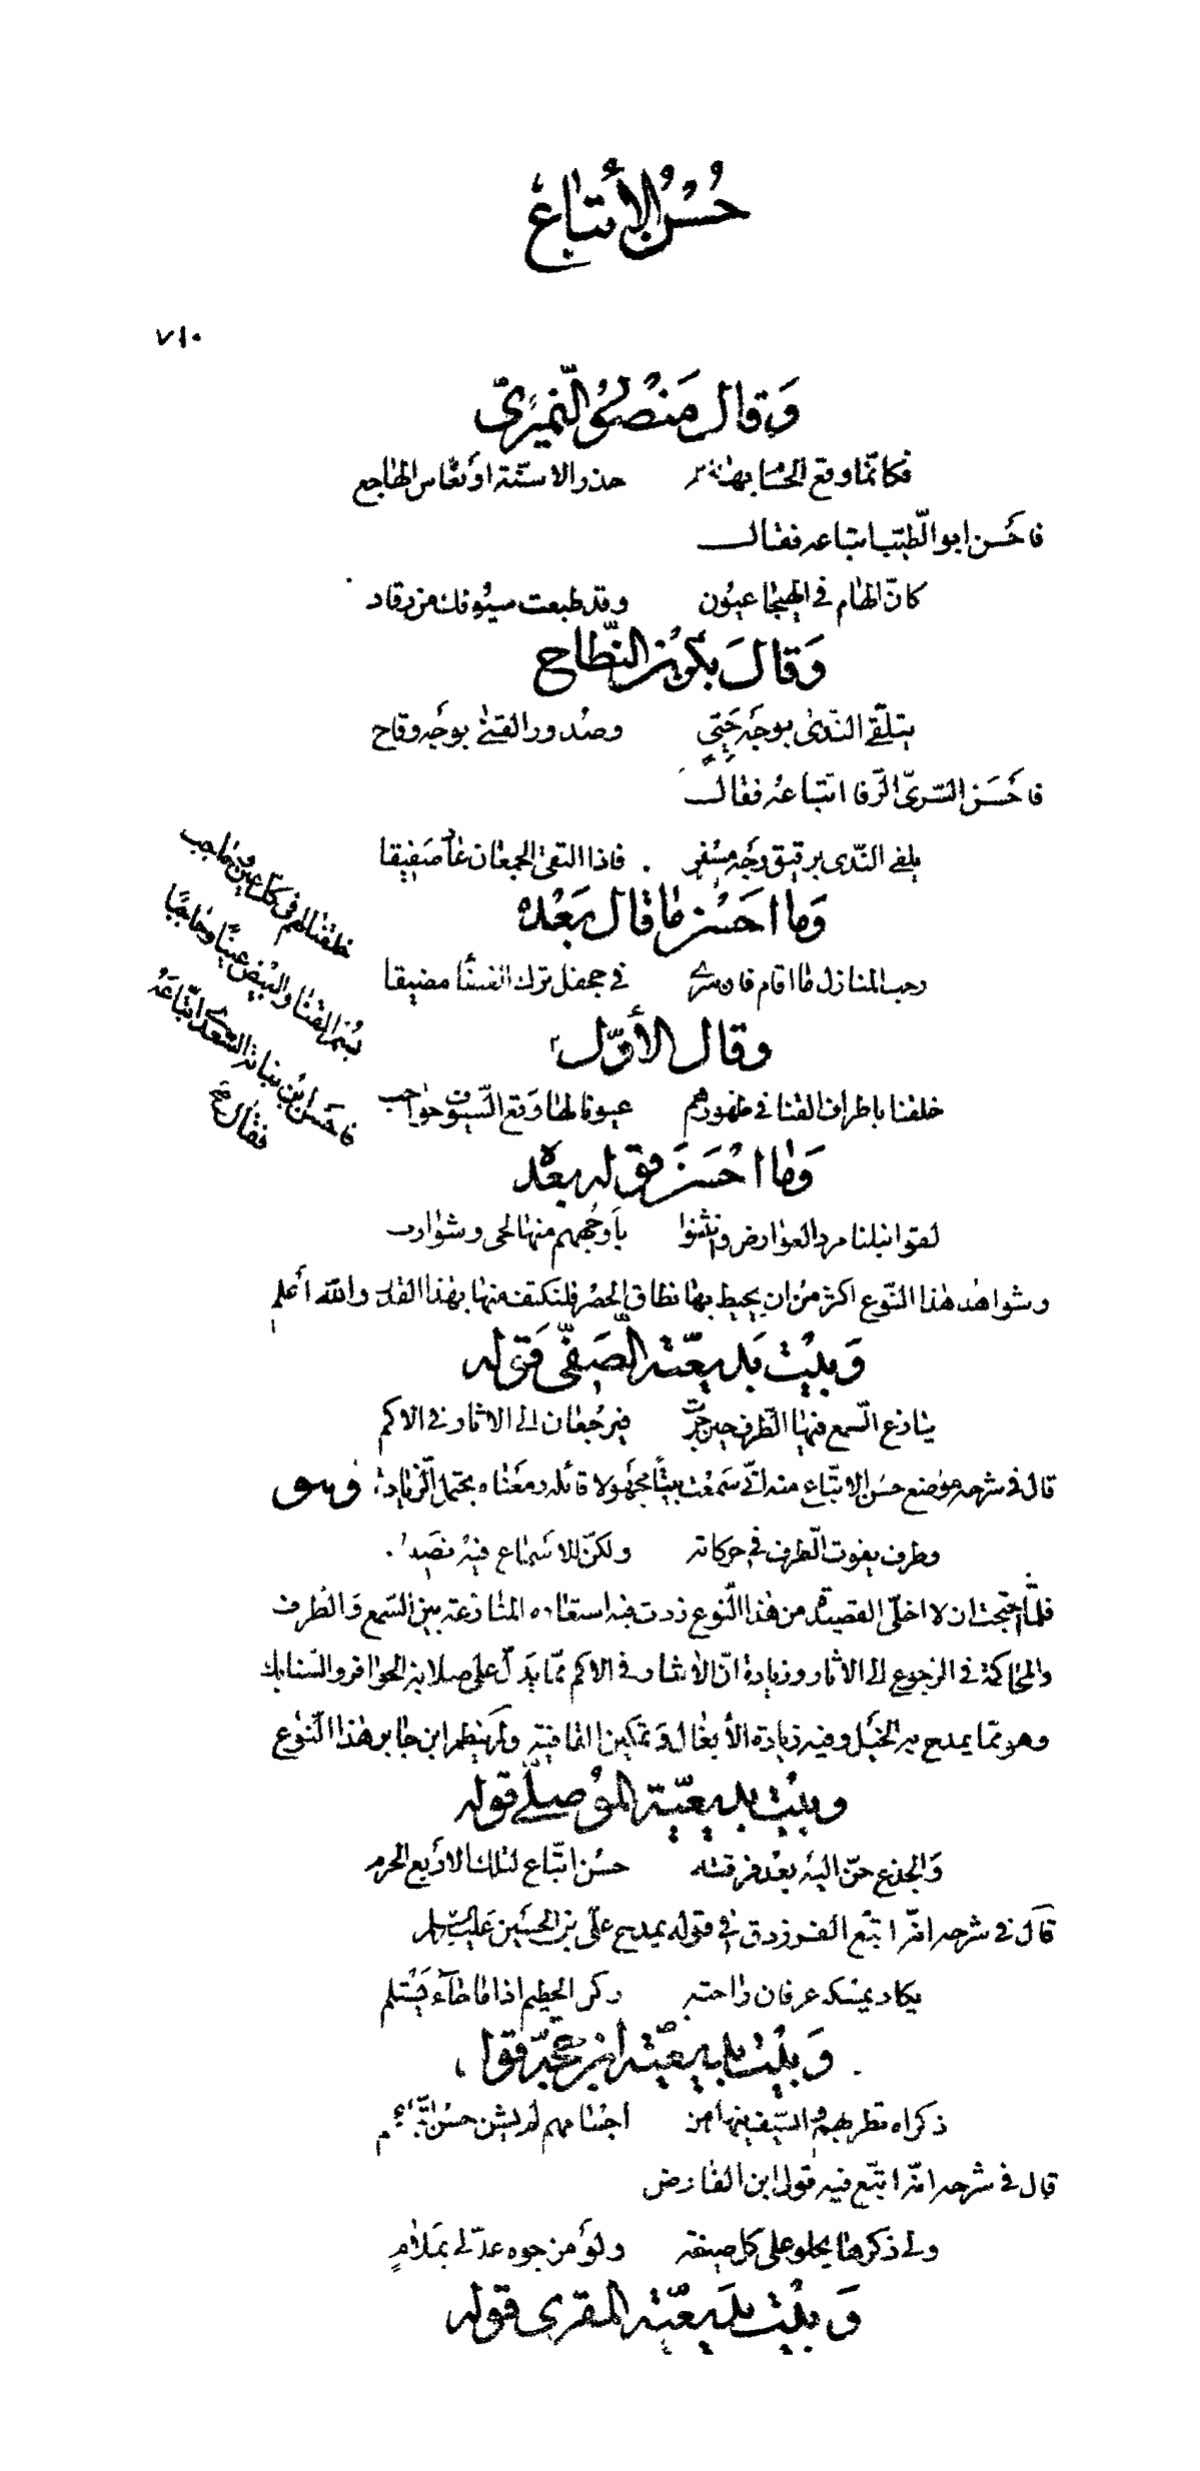 حُسْنُ الْأتباع
٧١٠
وَقال مَنصُور النّميريّ
فكانّما وقع الحسام بهامه حذر الاسنّة او نعاس الهاجع
فاحسَن ابو الطّيّب اتباعه فقال
كانّ الهام في الهيجا عيون وقد طبعت سيوفك من رقاد
وَقالَ بكر بن النّطاح
يتلقّى النّدى بوجه حَييٍّ وصُدور القنى بوجه وقاح
فاحسَن السّريّ الرّفا اتّباعه فقال
يلقى النّدى برقيق وجه مسفر فاذا التقى الجمعان عاد صفيقا
وَما احسَن ما قال بَعْده
رحب المنازل ما اقام فان سرى في جحفل ترك الفضا مضيقا
وقال الأوّل
خلقنا باطراف القنا في ظهورهم عيونا لها وَقع السّيوف حواجب
فاحسَن ابن نباتة السّعدي اتّباعَهُ
فقال
خلقنا لهم في كلّ عين وحاجب
بسُمر القنا والبيض عينًا وحاجبًا
وَما احْسَنَ قوله بعده
لقوا نبلنا مرد العوارض وانثنوا بأوجههم منها لحى وشوارب
وشواهد هذا النّوع اكثر من ان يحيط بها نطاق الحصر فلنكتف منها بهذا القدر والله أعلم
وَبيْت بَديعيّة الصّفيّ قوله
ينازع السّمع فيها الطّرف حين جرت فيرجعان الى الاثار في الاكم
قال في شرحه موضع حسن الاتّباع منه انّي سَمعْت بيتًا مجهولا قائله ومعناه يحتمل الزّيادة وهو
وطرف يفوت الطّرف في حركاته ولكنّ للاسماع فيه نصيب
فلمّا احتجت ان لا اخلّي القصيدة من هذا النّوع زدت فيه استعارة المنازعة بين السّمع وَالطّرف
والمحاكمة في الرجوع الى الاثار وزيادة انّ الاثار في الاكم ممّا يَدلّ على صلابة الحوافر والسّنابك
وهو ممّا يمدح به الخيل وفيه زيادة الأيغال وَتمكين القافية ولم ينظم ابن جابر هذا النّوع
وبيْت بديعيّة الموْصليّ قوله
وَالجذع حنّ اليْه بعْد فرقته حسْن اتّباع لتلك الاربع الحرم
قال في شرحه انّه اتبّع الفرزدق في قوله يمدح عليّ بن الحسَين عَليْه السّلم
يكاد يمسكه عرفان راحته ركن الحطيم اذا ما جآء يَسْتلم
وَبيْت بديعيّة ابن حجّة قوله
ذكراه تطربهم والسّيف ينهل من اجسامهم لم يشن حسْن اتّباعهم
قال في شرحه انّه اتبّع فيه قول ابن الفارض
ولي ذكرها يحلو على كلّ صيغة ولو مزجوه عذّلي بمَلامٍ
وَبيْت بديعيّة المقري قوله